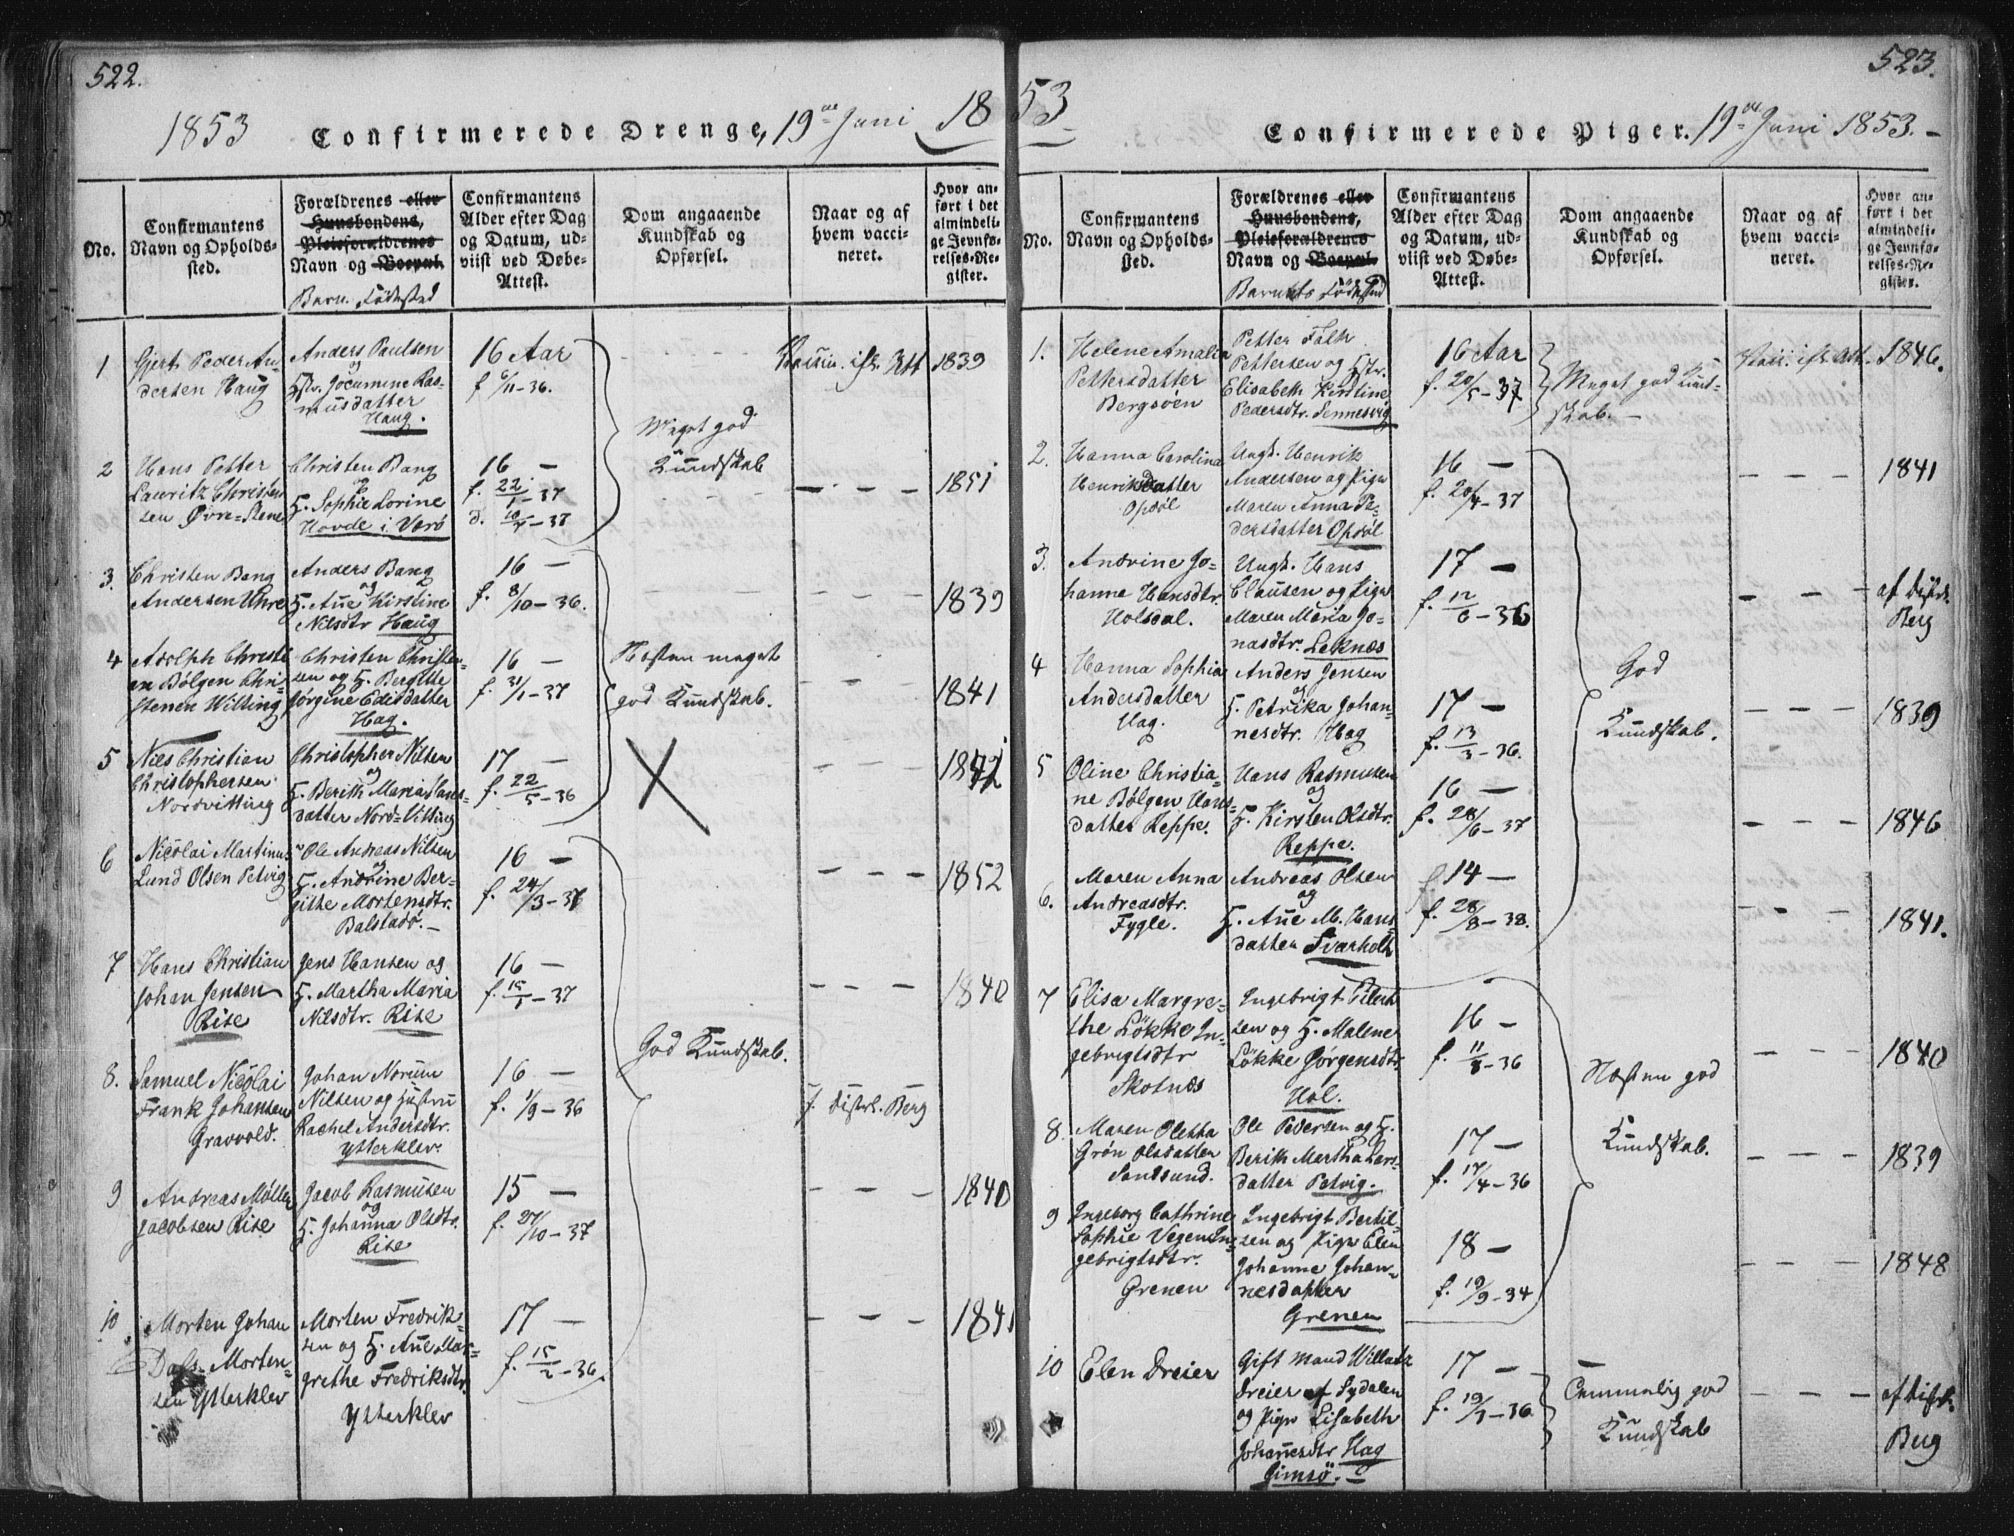 522.
1853 Confirmerede Drenge, 19de Juni 1853
No.
Confirmantens
Navn og Opholds-
sted.
Forældrenes eller
Huusbondens,
Pleieforældrenes
Navn og Boepæl.
Barn. Fødested
Confirmantens
Alder efter Dag
og Datum, ud-
viist ved Døbe-
Attest.
Dom angaaende
Kundskab og
Opførsel.
Naar og af
hvem vacci-
neret.
Hvor an-
ført i det
almindeli-
ge Jevnfø-
relses-Re-
gister.
1
Gjert Peder An-
dersen Haug
Anders Paulsen
og
Hstr. Jocumine Ras-
musdatter
Haug.
16 Aar
f 6/11-36.
Vaccin. ifør. Att
1839
Meget god
Kundskab
2
Hans Petter
Lauritz Christen
sen Øvre-Stene
Christen Bang
og
H. Sophie Lorine
Hovde i Værø
16 —
f. 22/1-37
d. 10/4-37
— — —
1851
3
Christen Bang
Andersen Uhre
Anders Bang
og
H. Ane Kirstine
Nilsdtr Haug
16 —
f. 8/10-36.
— — —
1839
4
Adolph Christi
an Bølgen Chri-
stensen Witting
Christen Christen-
sen og H. Bergitte
Jørgine Edisdatter
Hag.
16 —
f. 31/1-37
Næsten meget
god Kundskab.
— —
1841
5
Niels Christian
Christophersen
Nordvitting
Christopher Nilsen
og
H. Berith Maria Hans-
datter Nord-Vitting
17 —
f. 22/5-36
X
— — —
1842
6
Nicolai Martinus
Lund Olsen Petvig
Ole Andreas Nilsen
og
H. Andrine Ber-
gitte Mortensdtr.
Balstadø.—
16 —
f. 24/3-37
— — —
1852
7
Hans Christian
Johan Jensen
Rise
Jens Hansen og
H. Martha Maria
Nilsdtr. Rise
16 —
f. 15/1-37
— — —
1840
God Kundskab.
8.
Samuel Nicolai
Frank Johansen
Gravvold.
Johan Norum
Nilsen og Hustru
Rachel Andersdtr.
Ytterklev.
16 —
f. 1/9-36
f. Distrl. Berg
9
Andreas Møller
Jacobsen Rise
Jacob Rasmusen
og
H. Johanna Olsdtr.
Rise
15 —
f. 27/10-37
— — —
1840
10
Morten Johan
Dass Morten-
sen Ytterklev
Morten Fredrik-
sen og H. Ane Mar-
grethe Fredriksdtr.
Ytterklev
17 —
f. 15/2-36.
— — —
1841
523.
Confirmerede Piger. 19de Juni 1853.—
No.
Confirmantens
Navn og Opholds-
sted.
Forældrenes eller
Huusbondens,
Pleieforældrenes
Navn og Boepæl.
Barnets Fødested
Confirmantens
Alder efter Dag
og Datum, ud-
viist ved Døbe-
Attest.
Dom angaaende
Kundskab og
Opførsel.
Naar og af
hvem vacci-
neret.
Hvor an-
ført i det
almindeli-
ge Jevnfø-
relses-Re-
gister.
1.
Helene Amalia
Pettersdatter
Bergsøen
Petter Falk
Pettersen og Hstr.
Elisabeth Kirstine
Pedersdtr. Sennesvig
16 Aar
f. 20/5-37
Meget god Kund-
skab.—
Vacc. ifør Att.
1846.
2.
Hanna Carolina
Henriksdatter
Opdøl
Ungk. Henrik
Andersen og Pige
Maren Anna Pe-
dersdatter Opdøl
16 —
f. 20/4-37
— — —
1841
3.
Andrine Jo-
hanna Hansdtr.
Holsdal.
Ungk. Hans
Clausen og Pige
Maren Maria Jo-
nasdtr. Leknæs
17 —
f. 12/6-36
— — —
af Distr.
Berg
4
Hanna Sophia
Andersdatter
Hag.
Anders Jensen
og
H. Petrika Johan-
nesdtr. Hag
17 —
f. 13/3-36.
God
Kundskab.
— — —
1839
5
Oline Christia-
ne Bølgen Hans-
datter Reppe.
Hans Rasmusen
og
H. Kirsten Olsdtr.
Reppe.
16 —
f. 28/6-37
— — —
1846
6.
Maren Anna
Andreasdtr.
Fygle.
Andreas Olsen
og
H. Ane M. Hans
datter Svarholt
14 —
f. 28/8-38.
— — —
1841.
7
Elisa Margre-
the Løkke In-
gebrigtsdtr
Skotnæs
Ingebrigt Eilert
sen og H. Malene
Løkke Jørgensdtr.
Hol.
16 —
f. 11/8-36
— — —
1840
8.
Maren Oletta
Grøn Olsdatter
Sandsund.
Ole Pedersen og H.
Berith Martha Lars-
datter Petvig.
17 —
f. 17/4-36
Næsten god
Kundskab.
— — —
1839
9
Ingeborg Cathrine
Sophie Vegen In-
gebrigtsdtr.
Grenen
Ingebrigt Bertil-
sen og Pige Elen
Johanne Johan-
nesdatter
Grenen
18 —
f. 19/9-34
— — —
1848
10
Elen Dreier
Gift Mand Willatz
Dreier af Sydalen
og Pige Lisabeth
Johannesdtr Hag
Gimsø.—
17 —
f. 19/7-36.
—
Temmelig god
Kundskab
— — —
af Distr.
Berg